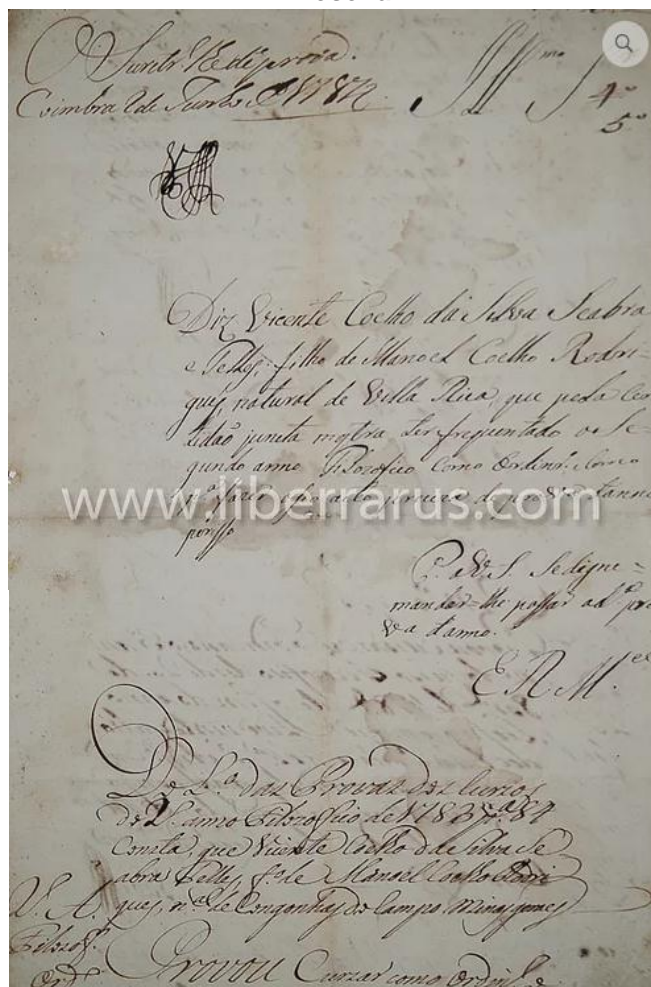 Coimbra 2 de Junho de 1787
4º
5º
Diz Vicente Coelho da Silva Seabra
e Telles, filho de Manoel Coelho Rodri=
gues, natural de Villa Rica, que pela Cer
tidaõ juncta mostra ter frequentado o Se=
gundo anno Filozofico como Ordinrº. e como
www.liberrarus.com
porisso
P. a V. S. Se digne=
mandar-lhe passar a d.ª pro
va d'anno.
E. R. M.ce
Do L.º das Provas dos Cursos
do 2.º anno Filozoffico de 1783 p.ª 84
Consta, que Vicente Coelho da Silva Se
abra Telles, f.º de Manoel Coelho Rodri
gues, n.al de Congonhas do Campo Minas geraes
Filozof.
Provou Cursar como Ordin.º e
Ord.